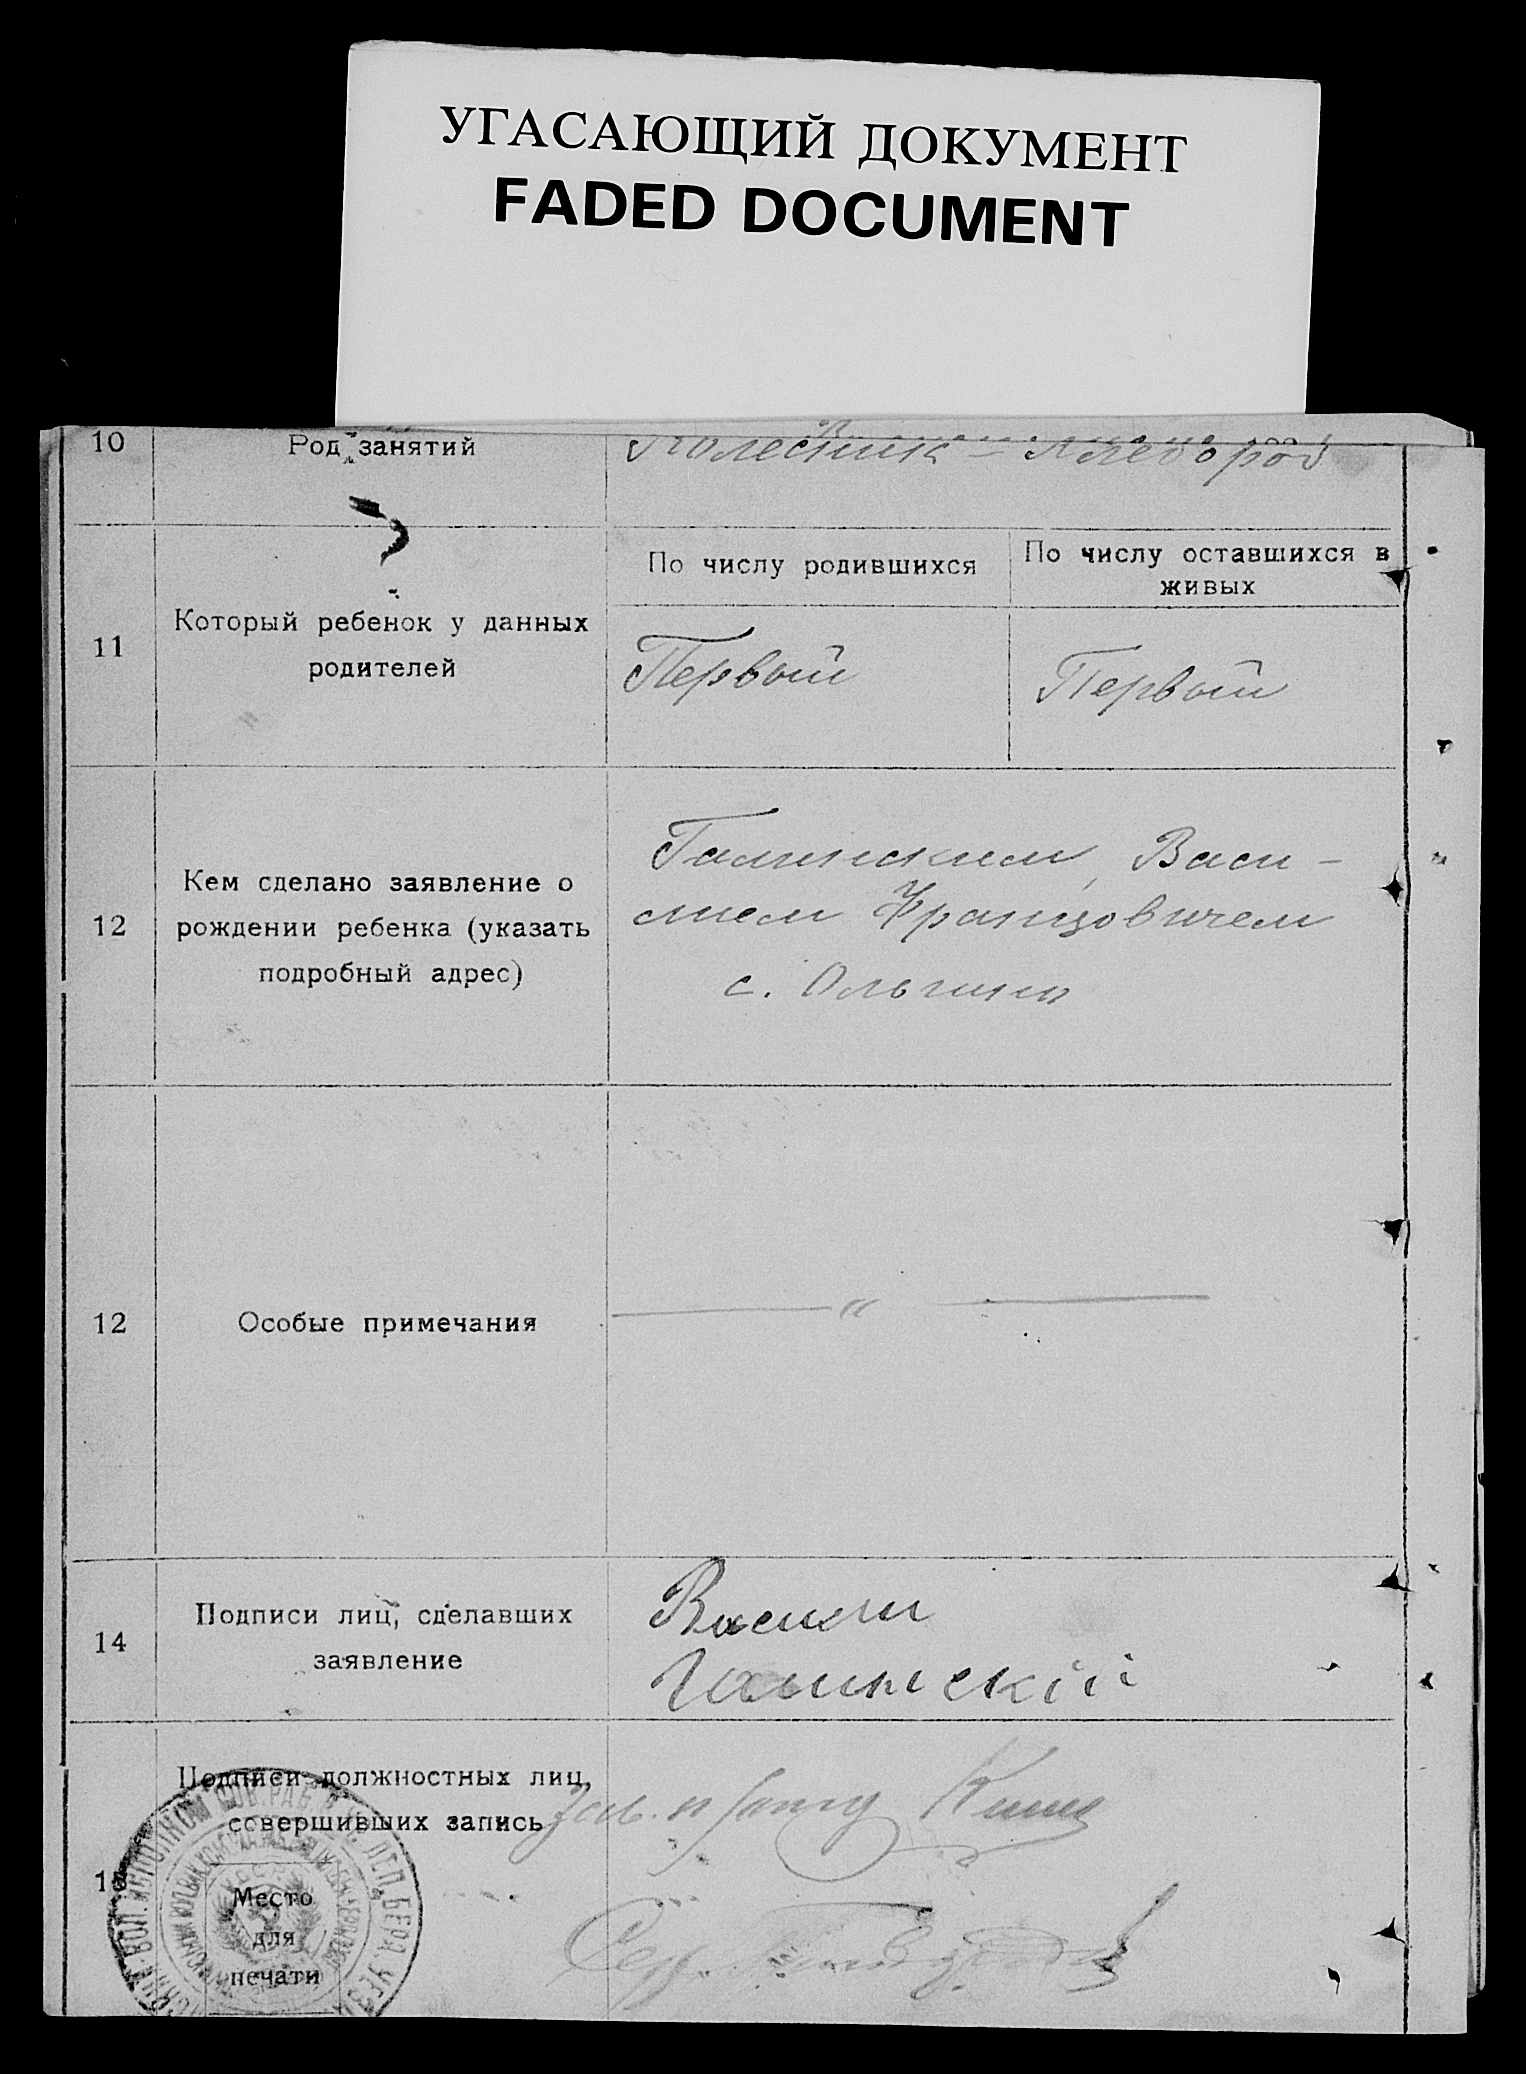 УГАСАЮЩИЙ ДОКУМЕНТ
FADED DOCUMENT
10
Род занятий
Колесник - Хлебороб
11
Который ребенок у данных
родителей
По числу родившихся
По числу оставшихся в
живых
Первый
Первый
12
Кем сделано заявление о
рождении ребенка (указать
подробный адрес)
Галинским, Васи-
лием Францовичем
с. Ольгино
12
Особые примечания
— " —
14
Подписи лиц, сделавших
заявление
Василий
Галинский
15
Подписи должностных лиц,
совершивших запись
Зав.
Место
для
печати